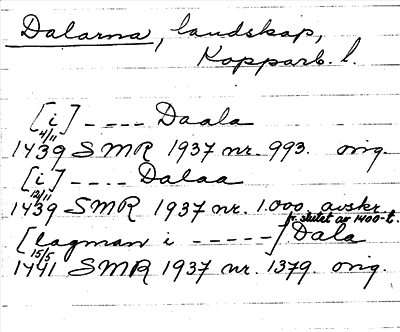 Dalarna, landskap,
Kopparb. l.
[i] ---- Daala
4/11
1439 SMR 1937 nr. 993. orig.
[i] ---- Dalaa
12/11
1439 SMR 1937 nr. 1.000 avskr.
fr. slutet av 1400-t.
[lagman i -----] Dala
15/5
1441 SMR 1937 nr. 1379. orig.